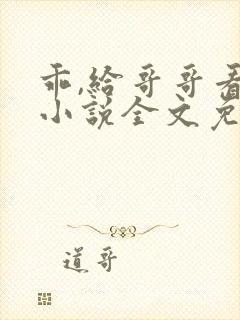 乖,給哥哥看
小說全文免
道哥